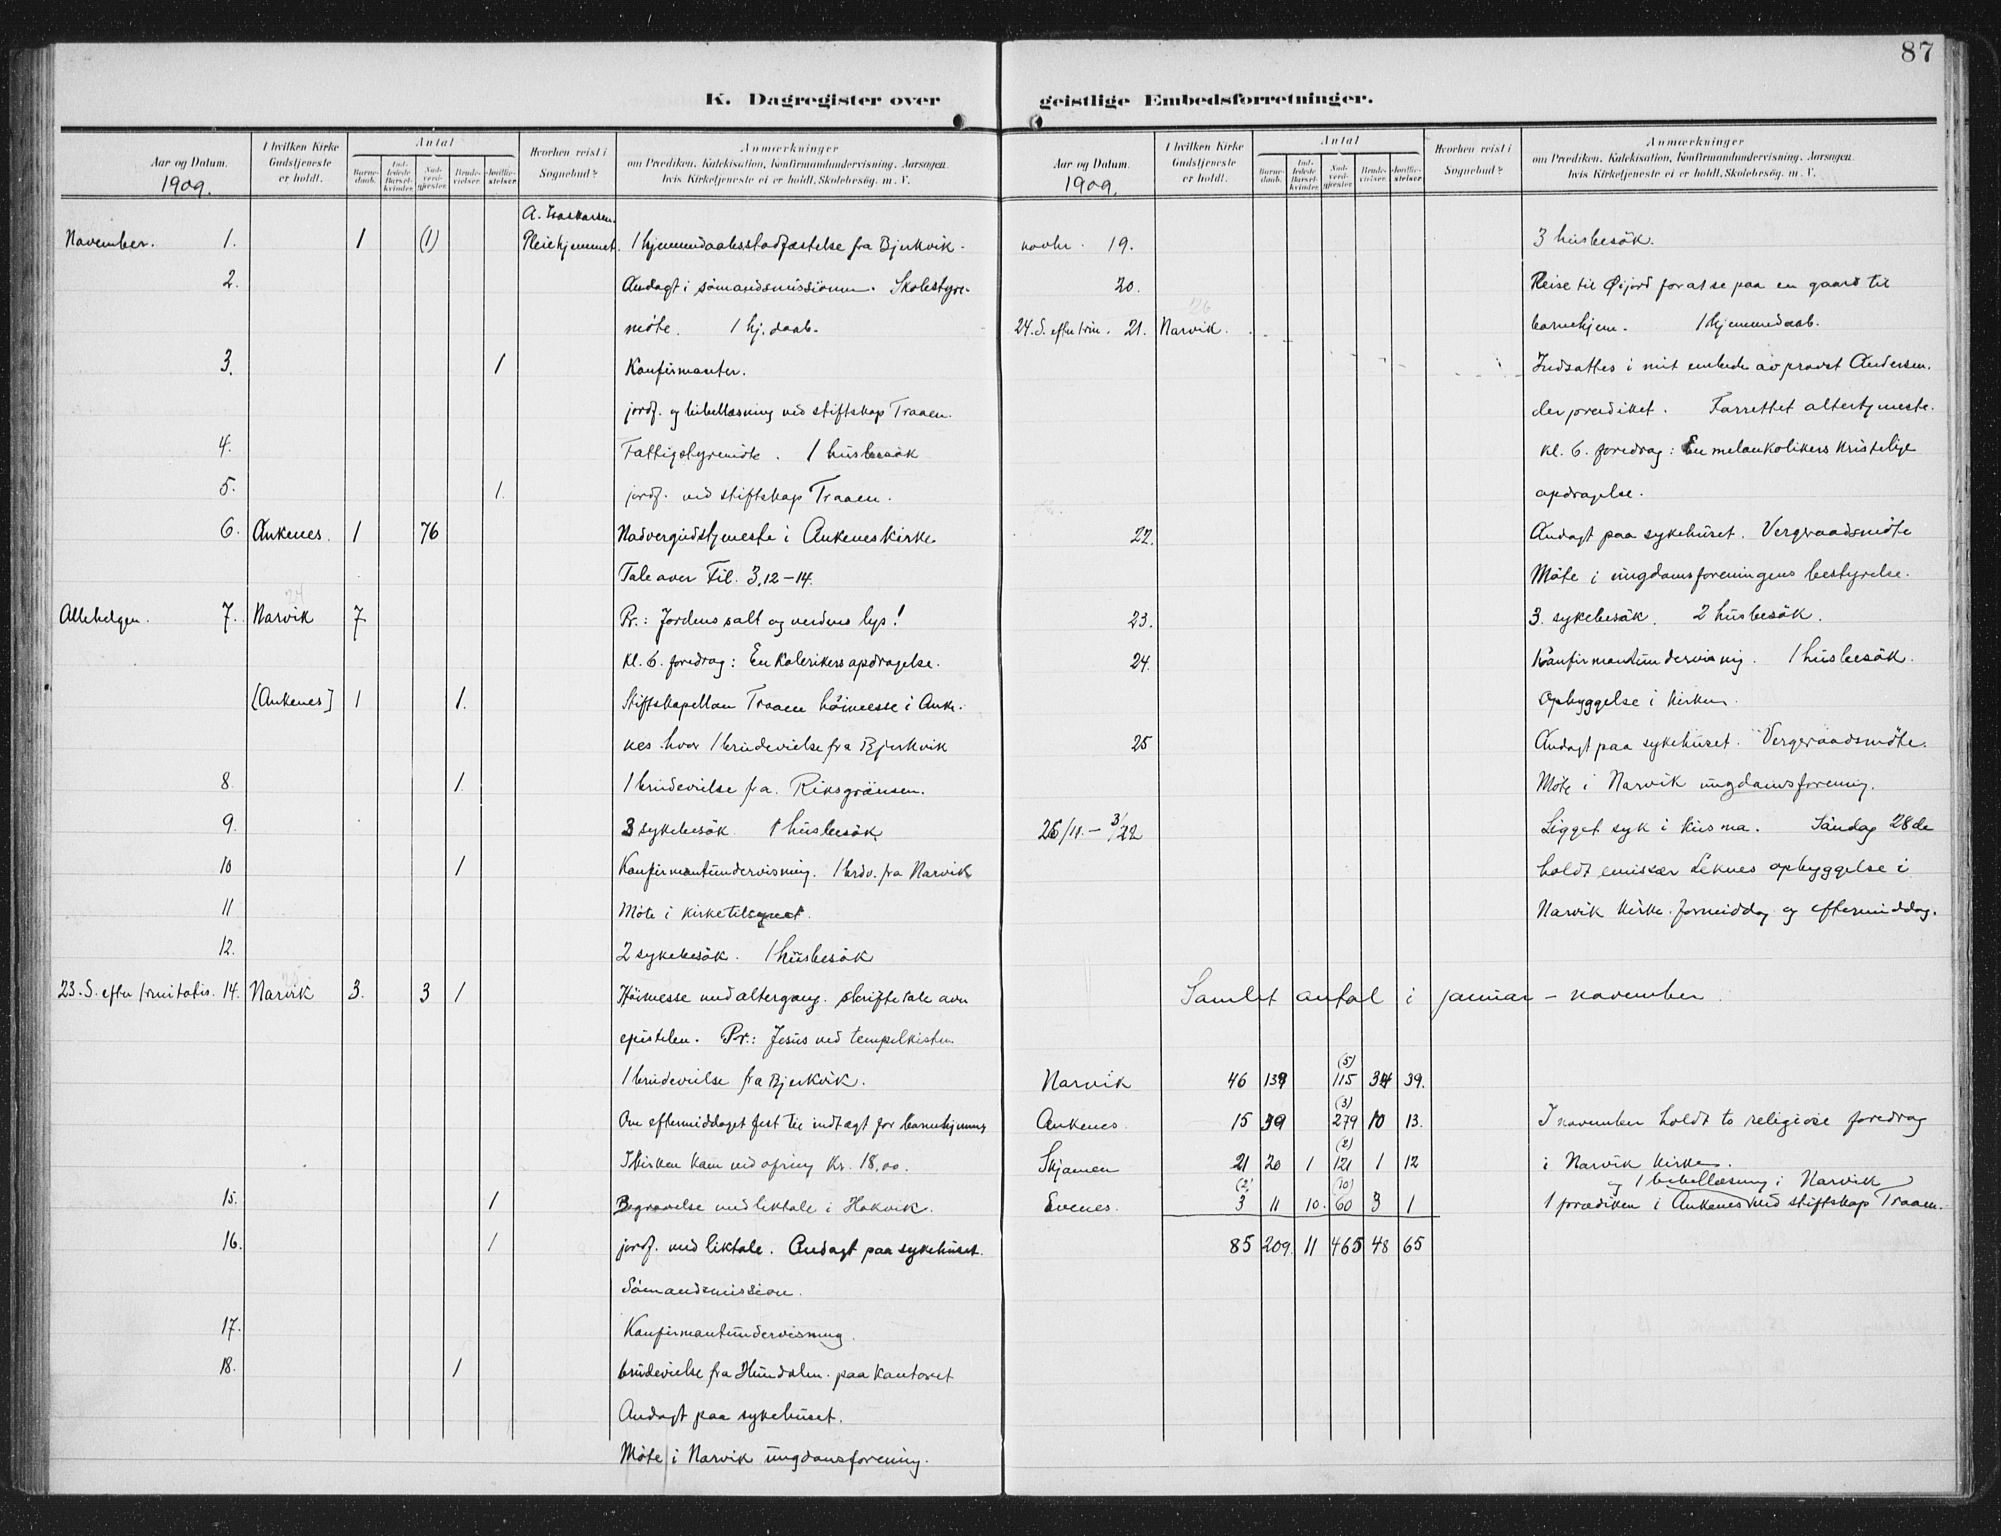 87
K. Dagregister over
Aar og Datum.
1909.
I hvilken Kirke Gudstjeneste er holdt.
Antal
Barnedaab.
Indledede Barselkvinder.
Nadverdgjester.
Brudevielser.
Jordfæstelser.
Hvorhen reist i Sognebud?
Anmærkninger
om Prædiken, Katekisation, Konfirmandundervisning, Aarsagen
hvis Kirketjeneste ei er holdt, Skolebesøg. m. V.
November. 1. 1 (1) Pleiehjemmet. 1 hjemmedaabsstadfæstelse fra Bjerkvik.
2. Andagt i sømandsmissionen. Skolestyre-
møte. 1 hj. daab.
3. 1 Konfirmanter.
jordf. og bibellæsning ved stiftskap Traaen.
4. Fattigstyremöte. 1 husbesök
5. 1. jordf. ved stiftskap Traaen.
6. Ankenes. 1 76 Nadvergudstjeneste i Ankenes kirke
Tale over Fil. 3, 12-14.
Allehelgen. 7. Narvik 7 Pr.: Jordens salt og verdens lys!
kl. 6. foredrag: En kolerikers opdragelse.
[Ankenes] 1 1. Stiftskapellan Traaen höimesse i Anke-
nes hvor 1 brudevielse fra Bjerkvik
8. 1. 1 brudevielse fra Riksgränsen.
9. 3 sykebesök. 1 husbesök
10 1 Konfirmantundervisning. 1 brdv. fra Narvik
11 Møte i kirketilsynet.
12. 2 sykebesök. 1 husbesök
23. S. efter trinitatis. 14. Narvik 3. 3 1 Höimesse med altergang. Skriftetale over
epistelen. Pr.: Jesus ved tempelkisten
1 brudevielse fra Bjerkvik.
Om eftermiddaget fest til indtægt for barnehjemmet
I kirken kom ved ofring Kr. 18,00.
15. 1 Begravelse med liktale i Hakvik.
16. 1 jordf. med liktale. Andagt paa sykehuset.
Sömandsmission.
17. Konfirmantundervisning.
18. 1 brudevielse fra Hundalen paa kontoret
Andagt paa sykehuset.
Møte i Narvik ungdomsforening.
geistlige Embedsforretninger.
Aar og Datum.
1909.
I hvilken Kirke Gudstjeneste er holdt.
Antal
Barnedaab.
Indledede Barselkvinder.
Nadverdgjester.
Brudevielser.
Jordfæstelser.
Hvorhen reist i Sognebud?
Anmærkninger
om Prædiken, Katekisation, Konfirmandundervisning, Aarsagen
hvis Kirketjeneste ei er holdt, Skolebesøg. m. V.
novbr. 19. 3 husbesök.
20. Reise til Øijord for at se paa en gaard til
24. S. efter trin. 21. Narvik. barnehjem. 1 hjemmedaab.
Indsattes i mit embede av provst Andersen.
der prædiket. Forrettet altertjeneste.
kl. 6. foredrag: En melankolikers kristelige
opdragelse.
22. Andagt paa sykehuset. Vergeraadsmöte
Møte i ungdomsforeningens bestyrelse.
23. 3. sykebesök. 2 husbesök.
24. Konfirmantundervisning. 1 husbesök.
Opbyggelse i kirken.
25 Andagt paa sykehuset. Vergeraadsmöte.
Møte i Narvik ungdomsforening.
26/11. - 3/12 Ligget syk i Søndag 28de
holdt emissær Leknes opbyggelse i
Narvik kirke. formiddag og eftermiddag.
Samlet antal i januar - november.
(5)
Narvik 46 139 115 34 39.
(3)
Ankenes. 15 39 279 10 13. I november holdt to religiøse foredrag
(2)
Skjomen 21 20 1 121 1 12 i Narvik kirke.
og 1 bibellæsning i Narvik
(2) (10)
Evenes. 3 11 10. 60 3 1 1 prædiken i Ankenes ved stiftskap Traaen.
85 209. 11 465 48 65